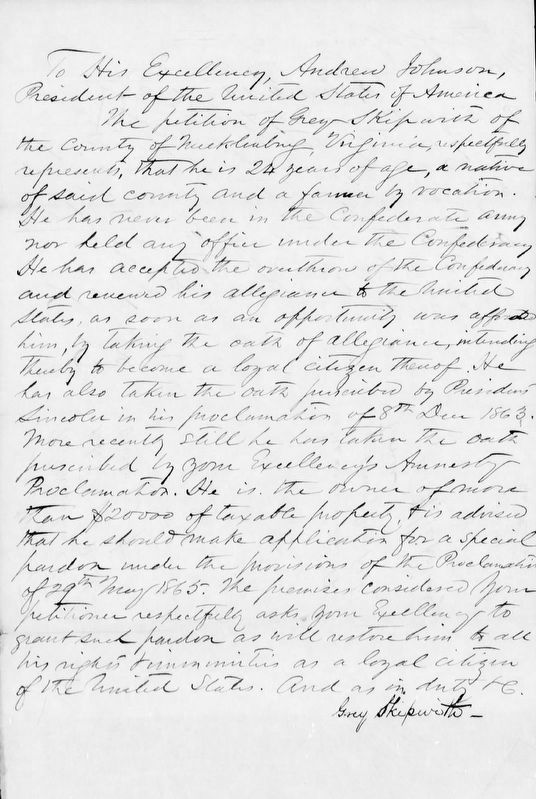 To His Excellency, Andrew Johnson,
President of the United States of America
The petition of Grey Skipwith of
the County of Mecklenburg, Virginia, respectfully
represents, that he is 24 years of age, a native
of said county and a farmer by vocation.
He has never been in the Confederate army
nor held any office under the Confederacy
He has accepted the overthrow of the Confederacy
and renewed his allegiance to the United
States, as soon as an opportunity was afforded
him, by taking the oath of allegiance, intending
thereby to become a loyal citizen thereof. He
has also taken the oath prescribed by President
Lincoln in his proclamation of 8th Decr 1863.
More recently still he has taken the oath
prescribed by your Excellency's Amnesty
Proclamation. He is the owner of more
than $20000 of taxable property, & is advised
that he should make application for a special
pardon under the provisions of the Proclamation
of 29th May 1865. The premises considered Your
petitioner respectfully asks your Excellency to
grant such pardon as will restore him to all
his rights & immunities as a loyal citizen
of the United States. And as in duty &C.
Grey Skipwith